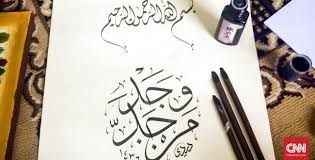 بسم الله الرحمن الرحيم
من جد
وجد
CNN
Indonesia